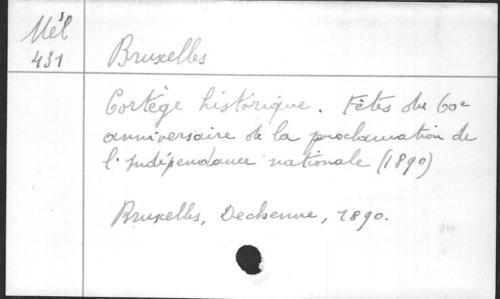 Mél
431
Bruxelles
Cortège historique. Fêtes du 60e
anniversaire de la proclamation de
l'Indépendance nationale (1890)
Bruxelles, Dechenne, 1890.